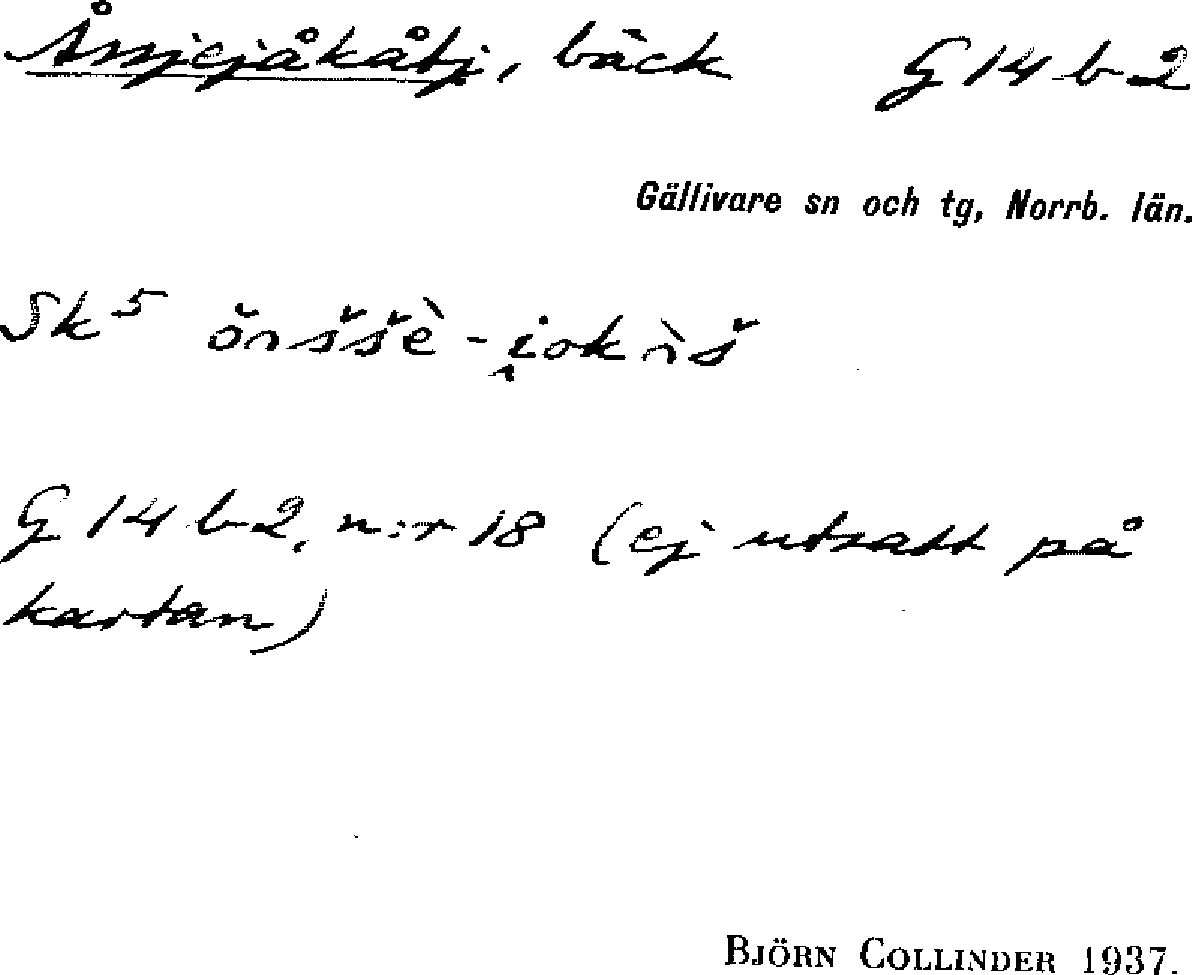 Åssjejåkåtj, bäck G 14 b 2
Gällivare sn och tg, Norrb. län.
Sk⁵
G 14 b 2, n:r 18 (ej utsatt på
kartan)
BJÖRN COLLINDER 1937.